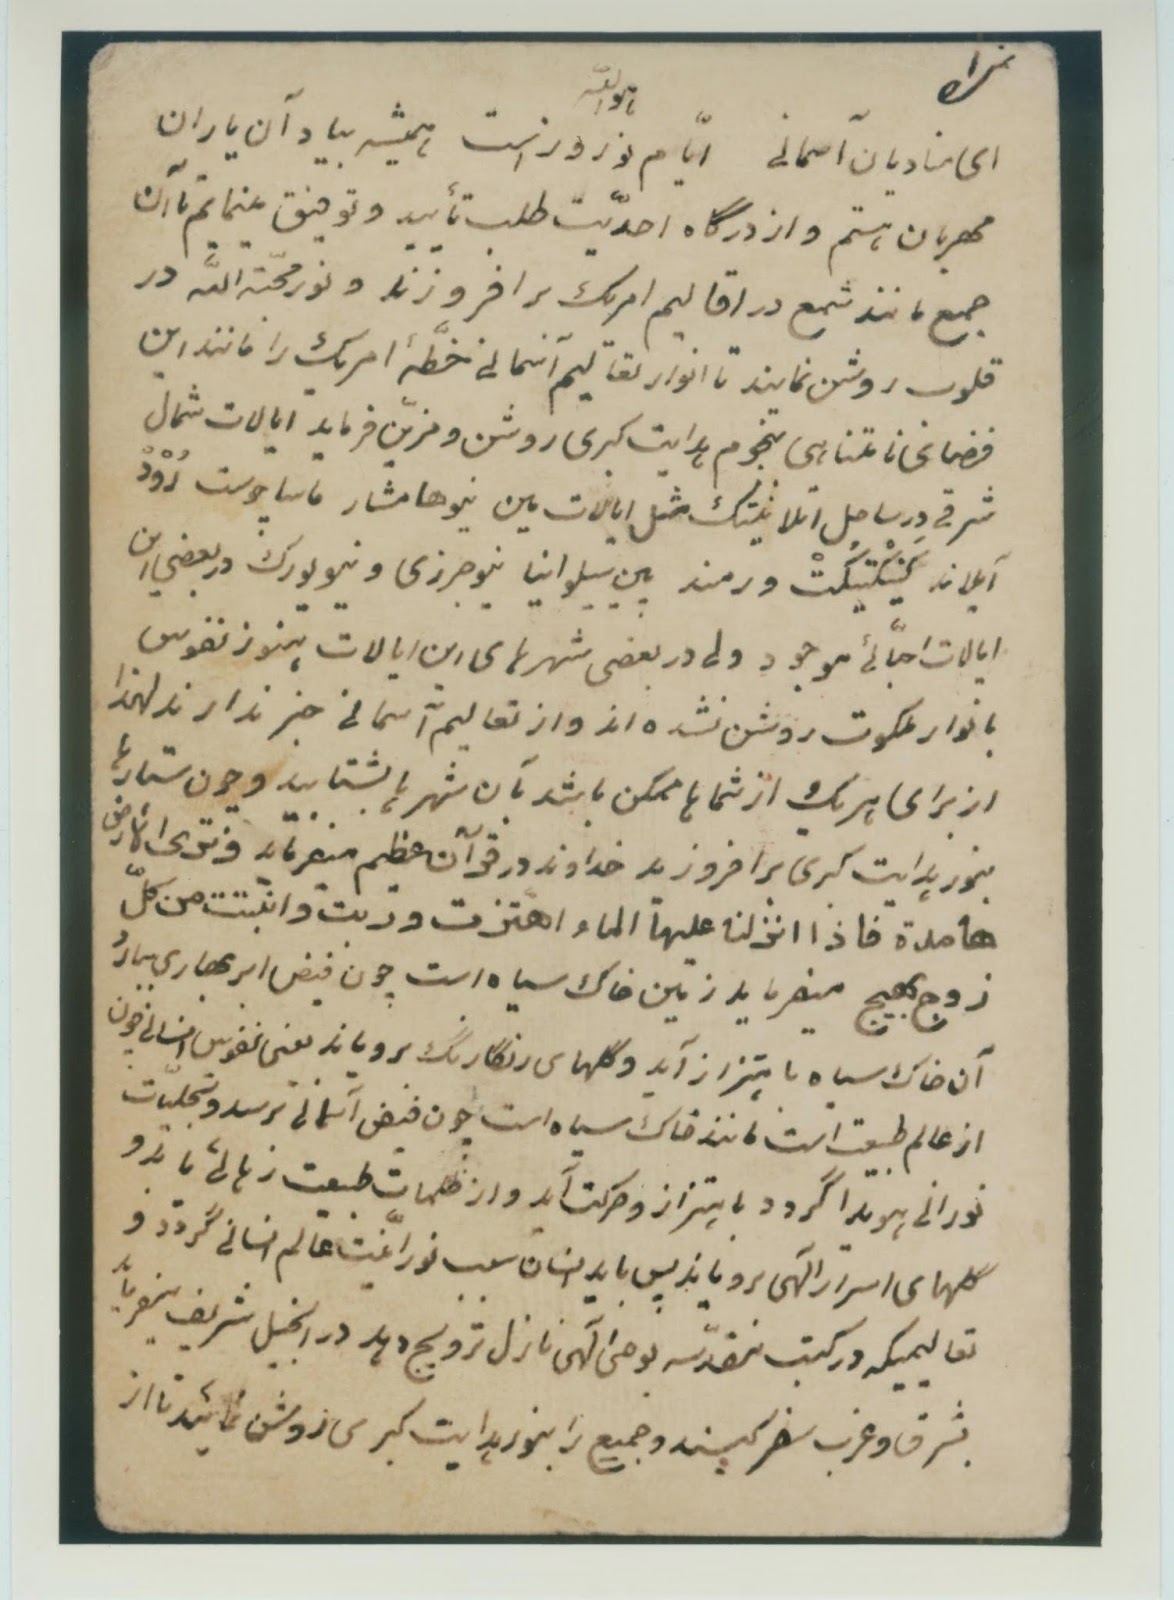 هوالله
ای منادیان آسمانی ایّام نوروز است همیشه بیاد آن یاران
مهربان هستم و از درگاه احدیّت طلب تأیید و توفیق مینمایم تا آن
جمع مانند شمع در اقالیم امریک برافروزند و نور محبّة الله در
قلوب روشن نمایند تا انوار تعالیم آسمانی خطّهٔ امریک را مانند این
فضای نامتناهی بنجوم هدایت کبری روشن و مزیّن فرماید ایالات شمال
شرقی در ساحل اتلانتیک مثل ایالات مین نیوهامشار ماساچوست رُوْدْ
آیلاند کنِکْتیکُتْ ورمند پین سیلوانیا نیوجرزی و نیویورک در بعضی این
ایالات احبّائی موجود ولی در بعضی شهرهای این ایالات هنوز نفوس
بانوار ملکوت روشن نشده‌اند و از تعالیم آسمانی خبر ندارند لهذا
از برای هر یک از شماها ممکن باشد بآن شهرها بشتابید و چون ستارها
بنور هدایت کبری برافروزید خداوند در قرآن عظیم میفرماید و تری الأرض
هامدة فاذا انزلنا علیها الماء اهتزت و ربت و انبتت من کلّ
زوج بهیج میفرماید زمین خاک سیاه است چون فیض ابر بهاری ببارد
آن خاک سیاه باهتزاز آید و گلهای رنگارنگ برویاند یعنی نفوس انسانی چون
از عالم طبیعت است مانند خاک سیاه است چون فیض آسمانی برسد و تجلیّات
نورانی هویدا گردد باهتزاز و حرکت آید و از ظلمات طبیعت رهائی یابد و
گلهای اسرار الهی برویاند پس باید انسان سبب نورانیّت عالم انسانی گردد و
تعالیمیکه در کتب مقدّسه بوحی الهی نازل ترویج دهد در انجیل شریف میفرماید
بشرق و غرب سفر کنید و جمیع را بنور هدایت کبری روشن نمائید تا از